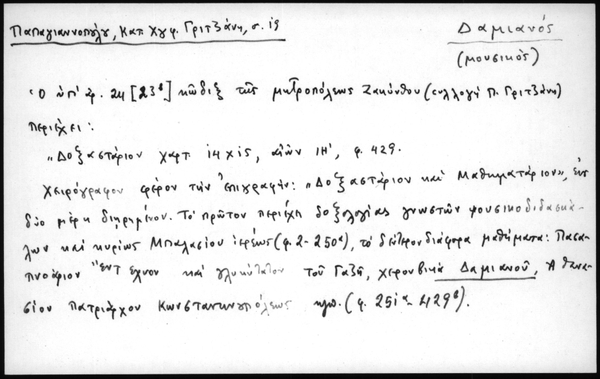 Παπαγιαννοπούλου, Κατ. Χγφ. Γριτζάνη, σ. 19
Δαμιανός
(μουσικός)
Ὁ ὑπ' ἀρ. 24 [23β] κῶδιξ τῆς μητροπόλεως Ζακύνθου (συλλογὴ Π. Γριτζάνη)
περιέχει:
"Δοξαστάριον χαρτ. 14×15, αἰών ΙΗ', φ. 429.
Χειρόγραφον φέρον τὴν ἐπιγραφήν: "Δοξαστάριον καὶ Μαθηματάριον", εἰς
δύο μέρη διῃρημένον. Τὸ πρῶτον περιέχει δοξολογίας γνωστῶν μουσικοδιδασκά-
λων καὶ κυρίως Μπαλασίου ἱερέως (φ. 2-250α), τὸ δεύτερον διάφορα μαθήματα: Πασα-
πνοάριον "ἔντεχνον καὶ γλυκύτατον τοῦ Γαζῆ, χερουβικὰ Δαμιανοῦ, Ἀθανα-
σίου πατριάρχου Κωνσταντινουπόλεως κλπ. (φ. 251α-429β).